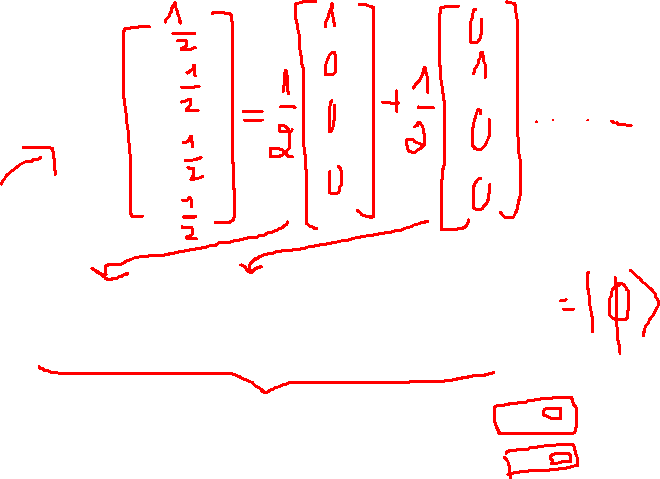 [1/2 1/2 1/2 1/2] = 1/2 [1 0 0 0] + 1/2 [0 1 0 0] .....
= |φ⟩